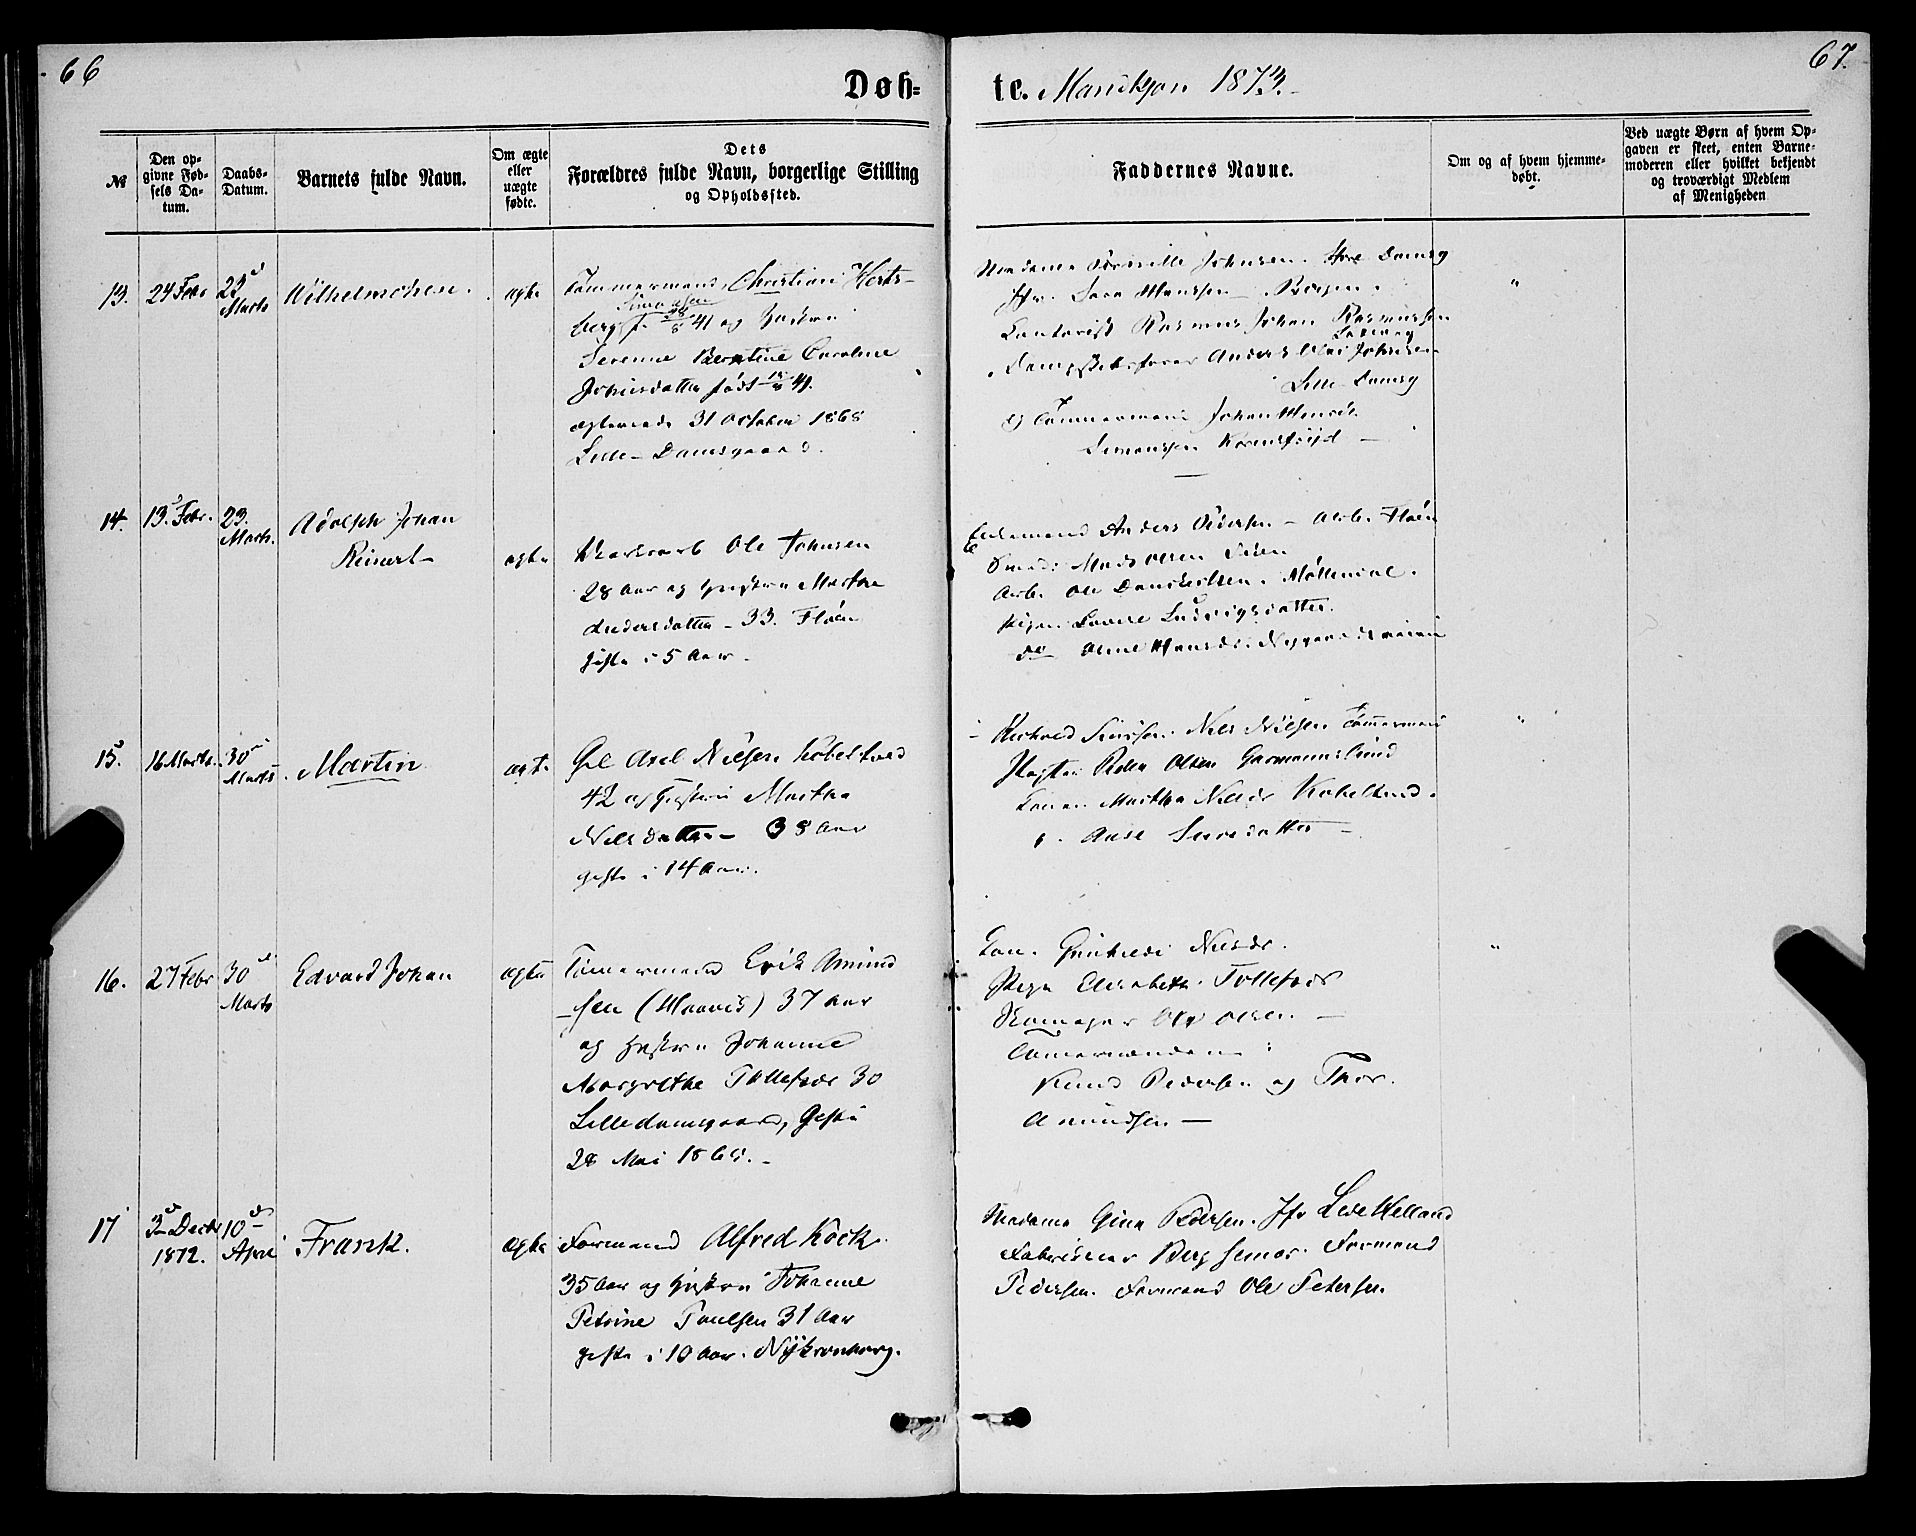 66
67.
Døb-
te. Mandkjøn 1873.
№
Den op-
givne Fød-
sels Da-
tum.
Daabs-
Datum.
Barnets fulde Navn.
Om ægte
eller
uægte
fødte.
Dets
Forældres fulde Navn, borgerlige Stilling
og Opholdssted.
Faddernes Navne.
Om og af hvem hjemme-
døbt.
Ved uægte Børn af hvem Op-
gaven er skeet, enten Barne-
moderen eller hvilket bekjendt
og troværdigt Medlem
af Menigheden
13.
24 Febr
23d
Marts
ægte
Tømmermand Christian Herts-
Simonsen
berg f. 28/8 41 og Hustru
Serenne Berntine Caroline
Johnsdatter født 41.
ægteviede 31 October 1868
Lille Damsgaard.
Madame Pernille Johnsen. Store Damsg
Jfr. Sara Hanssen Bergen.
Contorist Rasmus Johan Rasmussen
Ladevig
Dampskibsfører Anders Olai Johnsen
Lille Damsg
og Tømmermand Johan Henrik
Simonssen
"
14.
13d Febr.
23.
Marts.
Adolph Johan
Reinert
ægte
Ole Johnsen
28 Aar og Hustru Martha
Andersdatter 33. Fløen
gifte i 5 Aar.
Enkemand Anders Pedersen - Arb. Fløen
Smed Mads Olsen
Arb. Ole Danielsen. Møllendal.
Pigen Lovise Ludvigsdatter.
do Oline Hansdr.
15.
16 Marts.
30d
Marts
Martin
ægte
Axel Nilsen Kobeltved
42 og Hustru Martha
Nilsdatter 38 Aar
gifte i 14 Aar.
Nils Nilsen Tømmermand
Peder Olsen Garmannslund
Konen Martha Nilsdr Kobeltved.
"
16.
27 Febr
30d
Marts
Edvard Johan
ægte
Tømermand Erik Amund
sen 37 Aar
og Hustru Johanne
Margrethe Tollefsdr 30
Lilledamsgaard, Gifte
28 Mai 1868.
Kone Nilsdr.
Pige Elisabeth Tollefsdr
Skomager Ole Olsen.
Tømermændene:
Knud Pedersen og Thor.
Amundsen
"
17
3d Decbr
1872.
10d
April
Frank.
ægte
Formand Alfred Kock.
35 Aar og Hustru Johanne
Petrine Poulsen 31 Aar
gifte i 10 Aar. Nykronborg.
Madame Gina Pedersen. Jfr Lise Helland
Fabrikeier Berg senior. Formand
Pedersen. Formand Ole Petersen.